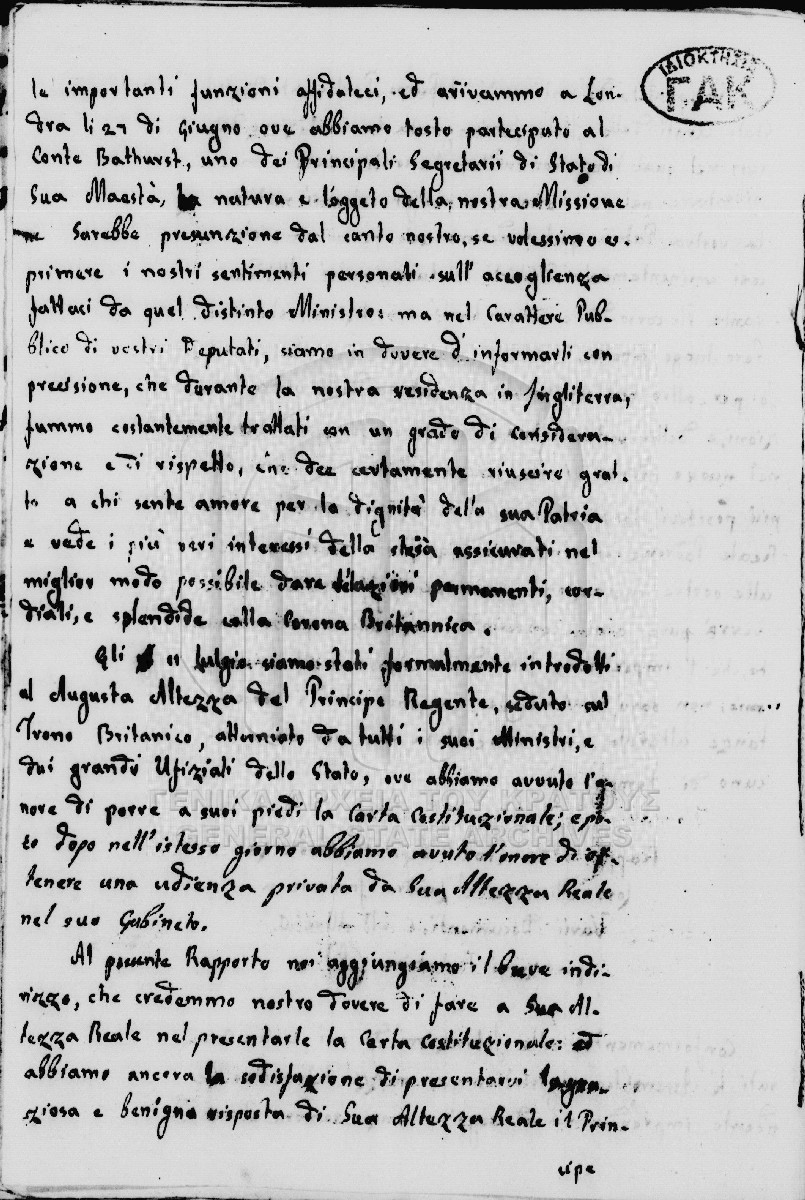 ΙΔΙΟΚΤΗΣΙΑ
ΓΑΚ
le importanti funzioni affidateci, ed arrivammo a Lon-
dra li 27 di Giugno ove abbiamo tosto partecipato al
Conte Bathurst, uno dei Principali Segretarii di Stato di
Sua Maestà, la natura e l'oggeto della nostra Missione
Sarebbe presunzione dal canto nostro, se volessimo es-
primere i nostri sentimenti personali sull' accoglienza
fattaci da quel distinto Ministro: ma nel Carattere Pub-
blico di vostri Deputati, siamo in dovere d' informarti con
precisione, che durante la nostra residenza in Inghilterra,
fummo costantemente trattati con un grado di considera-
zione e di rispetto, che dee certamente riuscire grat-
to a chi sente amore per la dignità dela sua Patria
e vede i più veri interessi della stessa assicurati nel
miglior modo possibile dare relazioni permanenti, cor-
diali, e splendide colla Corona Britannica.
Gli 11 Lulgio siamo stati formalmente introdotti
al Augusta Altezza del Principe Regente, seduto sul
Trono Britanico, attorniato da tutti i suoi Ministri, e
dai grandi Ufiziali dello Stato, ove abbiamo avvuto l'o-
nore di porre a suoi piedi la Carta Costituzionale; e po-
co dopo nell' istesso giorno abbiamo avuto l'onore di ot-
tenere una udienza privata da Sua Altezza Reale
nel suo Gabineto.
ΓΕΝΙΚΑ ΑΡΧΕΙΑ ΤΟΥ ΚΡΑΤΟΥΣ
GENERAL STATE ARCHIVES
Al presente Rapporto noi aggiungiamo il breve indi-
rizzo, che credemmo nostro dovere di fare a Sua Al-
tezza Reale nel presentarle la Carta Costituzionale: ed
abbiamo ancora la sodisfazione di presentarvi la gra-
ziosa e benigna risposta di Sua Altezza Reale il Prin-
cipe